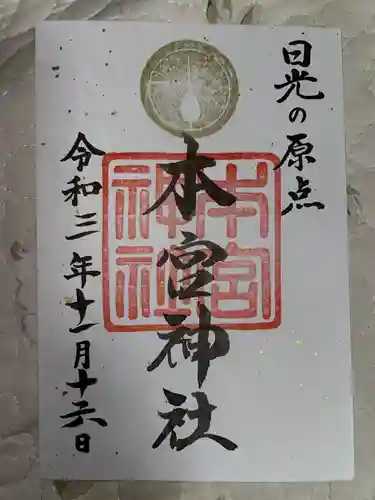 日光の原点
本宮神社
本宮
神社
令和三年十一月十六日